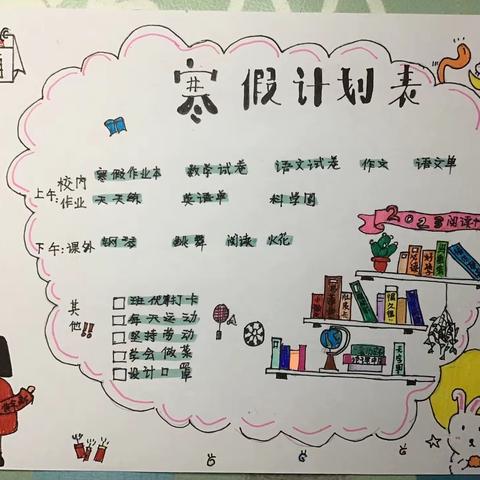 寒假计划表
校内 寒假作业本 数学试卷 语文试卷 作文 语文单
上午: 作业 天天练 英语单 科学园
2023阅读
下午: 课外 钢琴 跳舞 阅读 火花
其他!!
班优打卡
每天运动
坚持劳动
学会做菜
设计口罩